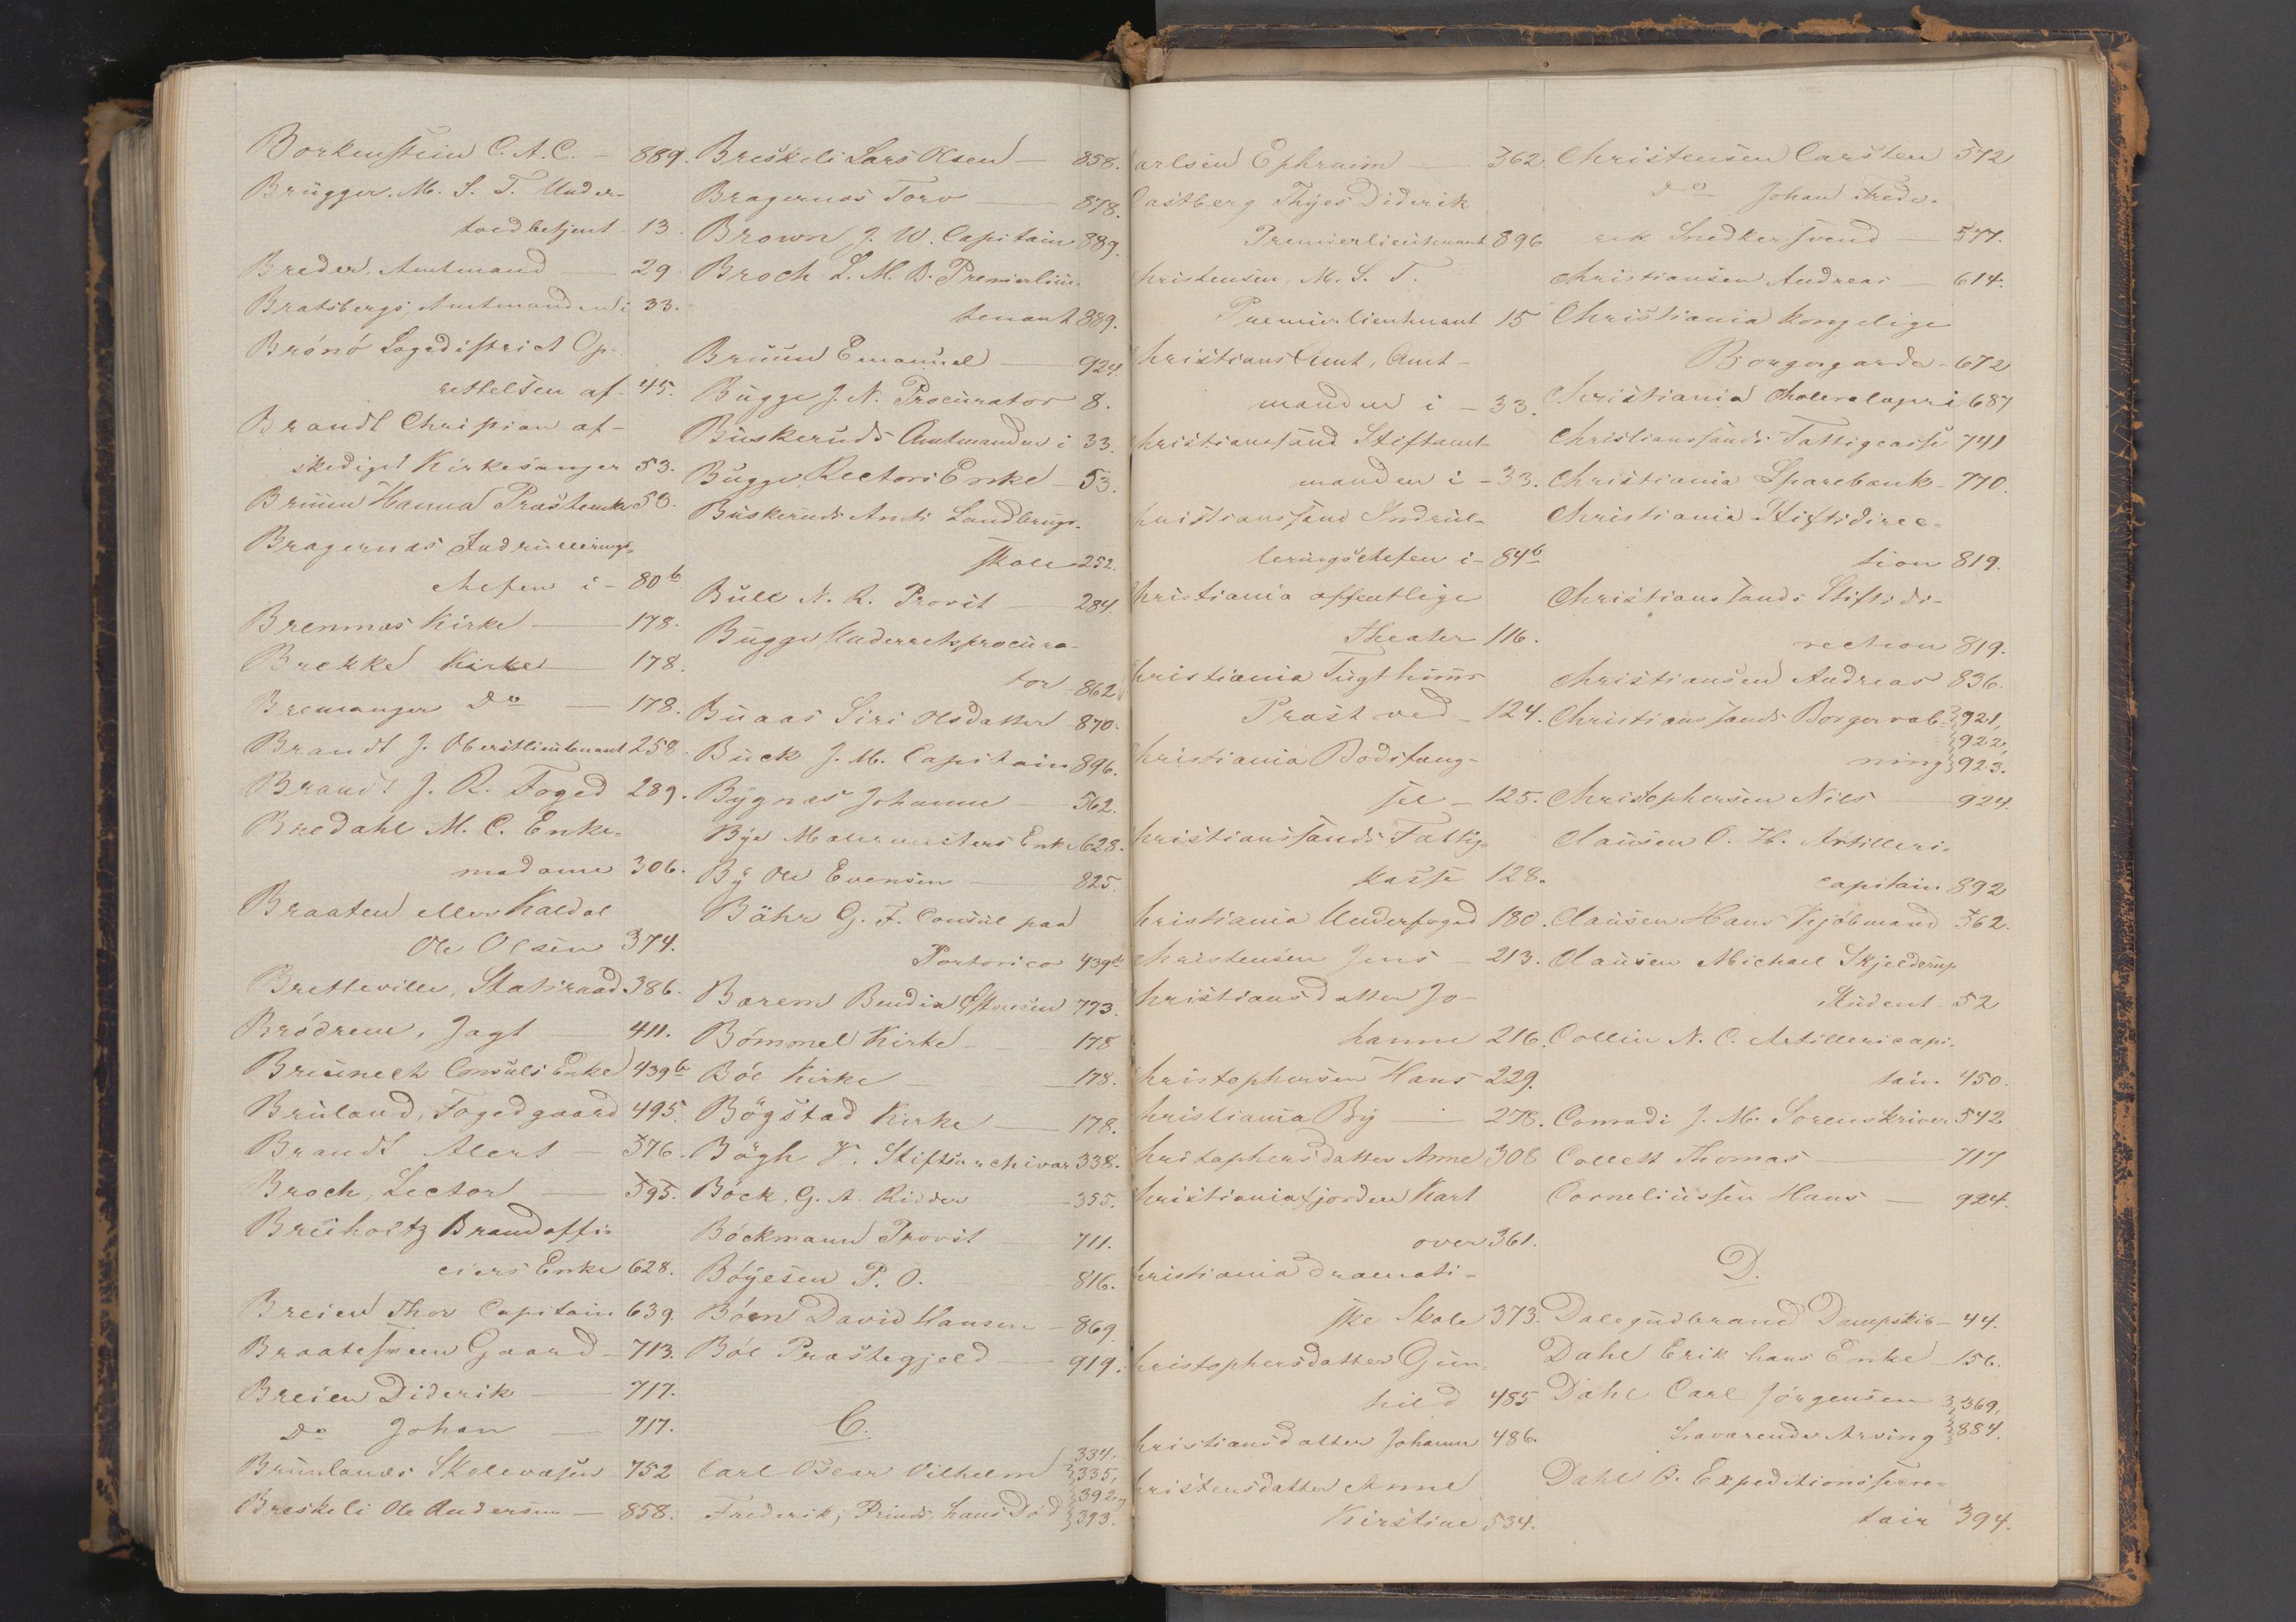 Borkenstein C. A. C. — 889.
Brügger. M. S. T. Under-
toldbetjent - 13.
Breder, Amtmand — 29.
Bratsbergs, Amtmanden i 33.
Brönö Logdistrict Op-
rettelsen af - 45.
Brandt Christian af-
skediget Kirkesanger 53.
Brüün Hanna Præstenke 53.
Bragernæs Indrullerings-
chefen i - 80b
Bremnæs Kirke — 178.
Brekke Kirke — 178.
Bremanger Do — 178.
Brandt J. Oberstlieutenant 258.
Brandt J. R. Foged 289.
Bredahl M. C. Enke-
madame 306.
Braaten eller Kaldal
Ole Olsen 374.
Bretteville, Statsraad 386.
Brödrene, Jagt — 411.
Brünech Consuls Enke 439b
Brüland, Fogedgaard 495.
Brandt Alert — 576.
Broch, Lector — 595.
Breiholtz Brandoffi-
ciers Enke 628.
Breien Thor Capitain 639.
Braatesveen Gaard - 713.
Breien Diderik — 717.
Do Johan — 717.
Brünlanæs Skolevæsen - 752
Breskeli Ole Andersen — 858.
Breskeli Lars Olsen — 858.
Bragernæs Torv — 878.
Brown J. W. Capitain 889.
Broch L. M. B. Premierlieu-
tenant 889.
Brüün Emanuel — 924.
Bügge J. N. Procürator 8.
Büskerüds Amtmanden i 33.
Bügge, Rectors Enke - 53.
Büskerüds Amts Landbrügs-
skole 252.
Büll N. R. Provst — 284.
Bügge, Underretsprocüra-
tor - 862
Büaas Siri Olsdatter - 870.
Bück J. M. Capitain 896.
Bÿgnæs Johanne — 562.
Bÿe Malermesters Enke 628.
Bÿ Ole Evensen — 825.
Bähr G. F. Consül paa
Portorico 439d
Bærem Bendix Estensen 773.
Bömmel Kirke — 178
Böe Kirke — 178.
Bögstad Kirke — 178.
Bögh V. Stiftsarchivar 338.
Böck, G. A. Ridder - 355.
Böckmann Provst — 711.
Böÿesen P. O. — 816.
Böm David Hansen - 869.
Böe Præstegjeld — 919.
C.
Carl Oscar Vilhelm 334, 335,
Frederik, Prinds, hans Död 392, 393.
arlsen Ephraim — 362.
Castberg Thÿes Diderik
Premierlieutenant 896
hristensen, M. S. T.
Premierlieutenant 15
hristians Amt, Amt-
manden i - 33.
hristianssand Stiftamt-
manden i - 33.
hristianssand Indrül-
leringschefen i - 84b
hristiania offentlige
Theater 116.
hristiania Tügthüüs
Præst ved - 124.
hristiania Bodsfæng-
sel - 125.
hristianssands Fattig-
kasse 128.
hristiania Underfoged 180.
hristensen Jens - 213.
hristiansdatter Jo-
hanne 216.
hristophersen Hans 229.
hristiania Bÿ — 278.
hristophersdatter Anne 308
hristianiafjorden Kart
over 361.
hristiania dramati-
ske Skole 373.
hristophersdatter Gün-
hild 485
hristiansdatter Johanne 486.
hristensdatter Anne
Kirstine 534.
Christensen Carsten 572
Do Johan Frede-
rik Snedkersvend — 577.
Christiansen Andreas — 614.
Christiania kongelige
Borgergarde - 672
Christiania Choleralager i 687
Christianssands Fattigcasse 741
Christiania Sparebank - 770.
Christiania Stiftsdirec-
tion 819.
Christianssands Stiftsdi-
rection 819.
Christiansen Andreas 836.
Christianssands Borgervæb- 921, 922,
ning 923.
Christophersen Nils — 924.
Clausen O. H. Artilleri-
capitain 892
Clausen Hans Kjöbmand 562.
Clausen Michael Skjelderüp
Stüdent - 52
Collin N. C. Artillericapi-
tain 450.
Conradi J. M. Sorenskriver 542
Collett Thomas — 717
Corneliüssen Hans — 924.
D.
Dalegüdbrand Dampskib — 44.
Dahl Erik hans Enke - 156.
Dahl Carl Jörgensen 369,
fraværende Arving 884.
Dahl O. Expeditionssecre-
tair 394.